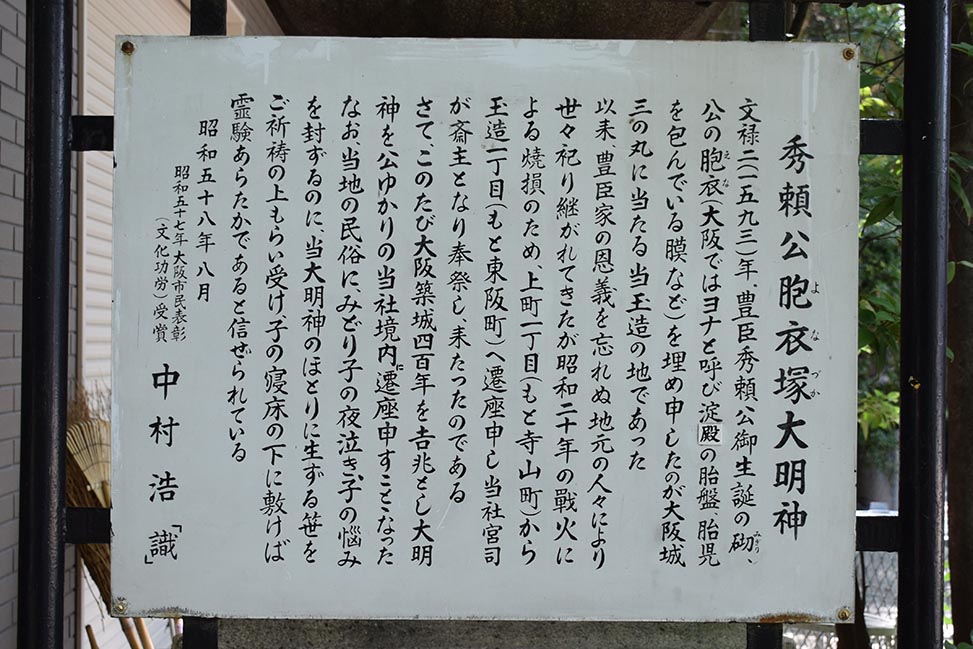 秀頼公胞衣塚大明神
よなづか
文禄二(一五九三)年、豊臣秀頼公御生誕の砌、
みぎり
公の胞衣(大阪ではヨナと呼び淀殿の胎盤、胎児
えな
を包んでいる膜など)を埋め申したのが大阪城
三の丸に当たる当玉造の地であった
以来、豊臣家の恩義を忘れぬ地元の人々により
世々祀り継がれてきたが昭和二十年の戰火に
よる焼損のため、上町一丁目(もと寺山町)から
玉造一丁目(もと東阪町)へ遷座申し当社宮司
が斎主となり奉祭し、来たったのである
さて、このたび大阪築城四百年を吉兆とし大明
神を、公ゆかりの当社境内に遷座申すこととなった
なお、当地の民俗に、みどり子の夜泣き、子の悩み
を封ずるのに、当大明神のほとりに生ずる笹を
ご祈祷の上もらい受け、子の寝床の下に敷けば
霊験あらたかであると信ぜられている
昭和五十八年八月
昭和五十七年大阪市民表彰
(文化功労)受賞
中村浩「識」